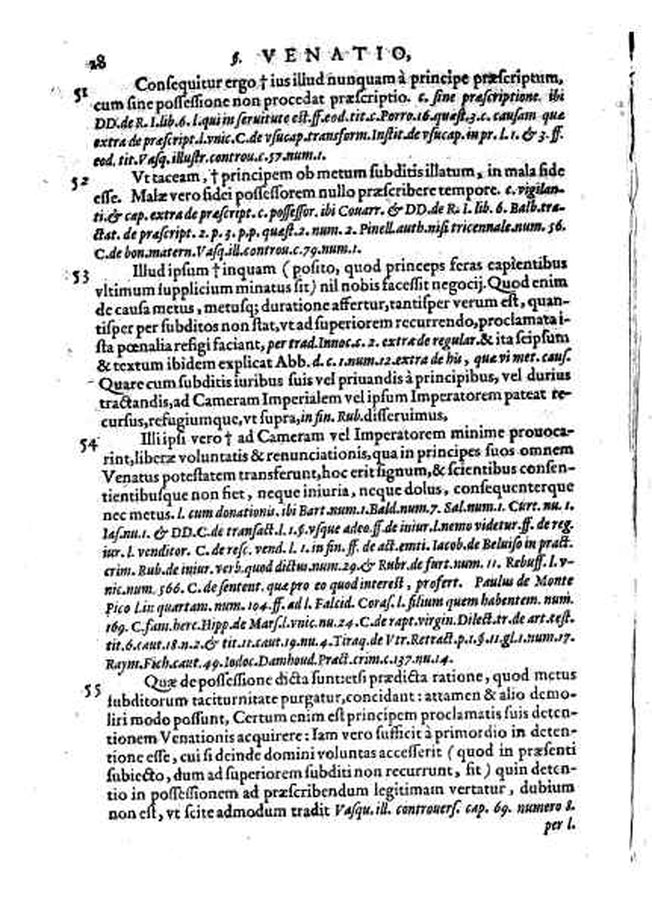 28
§. VENATIO,
51 Consequitur ergo † ius illud nunquam à principe præscriptum,
cum sine possessione non procedat præscriptio. c. sine præscriptione. ibi
DD. de R. I. lib. 6. l. qui in seruitute est. ff. eod. tit. c. Porro. 16. quæst. 3. c. causam quæ
extra de præscript. l. vnic. C. de vsucap. transform. Instit. de vsucap. in pr. l. 1. & 3. ff.
eod. tit. Vasq. illustr. controu. c. 57. num. 1.
52 Vt taceam, † principem ob metum subditis illatum, in mala fide
esse. Malæ vero fidei possessorem nullo præscribere tempore. c. vigilan-
ti. & cap. extra de præscript. c. possessor. ibi Couarr. & DD. de R. I. lib. 6. Balb. tra-
ctat. de præscript. 2. p. 3. p. p. quæst. 2. num. 2. Pinell. auth. nisi tricennale. num. 56.
C. de bon. matern. Vasq. ill. controu. c. 79. num. 1.
53 Illud ipsum † inquam (posito, quod princeps feras capientibus
vltimum supplicium minatus sit) nil nobis facessit negocij. Quod enim
de causa metus, metusq; duratione affertur, tantisper verum est, quan-
tisper per subditos non stat, vt ad superiorem recurrendo, proclamata i-
sta pœnalia refigi faciant, per trad. Innoc. c. 2. extra de regular. & ita seipsum
& textum ibidem explicat Abb. d. c. 1. num. 12. extra de his, quæ vi met. caus.
Quare cum subditis iuribus suis vel priuandis à principibus, vel durius
tractandis, ad Cameram Imperialem vel ipsum Imperatorem pateat re-
cursus, refugiumque, vt supra, in fin. Rub. disseruimus,
54 Illi ipsi vero † ad Cameram vel Imperatorem minime prouoca-
rint, liberæ voluntatis & renunciationis, qua in principes suos omnem
Venatus potestatem transferunt, hoc erit signum, & scientibus consen-
tientibusque non fiet, neque iniuria, neque dolus, consequenterque
nec metus. l. cum donationis. ibi Bart. num. 1. Bald. num. 7. Sal. num. 1. Curt. nu. 1.
Ias. nu. 1. & DD. C. de transact. l. 1. §. vsque adeo. ff. de iniur. l. nemo videtur. ff. de reg.
iur. l. venditor. C. de resc. vend. l. 1. in fin. ff. de act. emti. Iacob. de Beluiso in pract.
crim. Rub. de iniur. verb. quod dictus. num. 29. & Rubr. de furt. num. 11. Rebuff. l. v-
nic. num. 566. C. de sentent. quæ pro eo quod interest, profert. Paulus de Monte
Pico l. in quartam. num. 104. ff. ad l. Falcid. Coras. l. filium quem habentem. num.
169. C. fam. herc. Hipp. de Mars. l. vnic. nu. 24. C. de rapt. virgin. Dilect. tr. de art. test.
tit. 6. caut. 18. n. 2. & tit. 11. caut. 19. nu. 4. Tiraq. de Vtr. Retract. p. 1. §. 11. gl. 1. num. 17.
Raym. Fich. caut. 49. Iodoc. Damhoud. Pract. crim. c. 137. nu. 14.
55 Quæ de possessione dicta sunt: etsi prædicta ratione, quod metus
subditorum taciturnitate purgatur, concidant: attamen & alio demo-
liri modo possunt, Certum enim est principem proclamatis suis deten-
tionem Venationis acquirere: Iam vero sufficit à primordio in deten-
tione esse, cui si deinde domini voluntas accesserit (quod in præsenti
subiecto, dum ad superiorem subditi non recurrunt, fit) quin deten-
tio in possessionem ad præscribendum legitimam vertatur, dubium
non est, vt scite admodum tradit Vasqu. ill. controuers. cap. 69. numero 8.
per l.